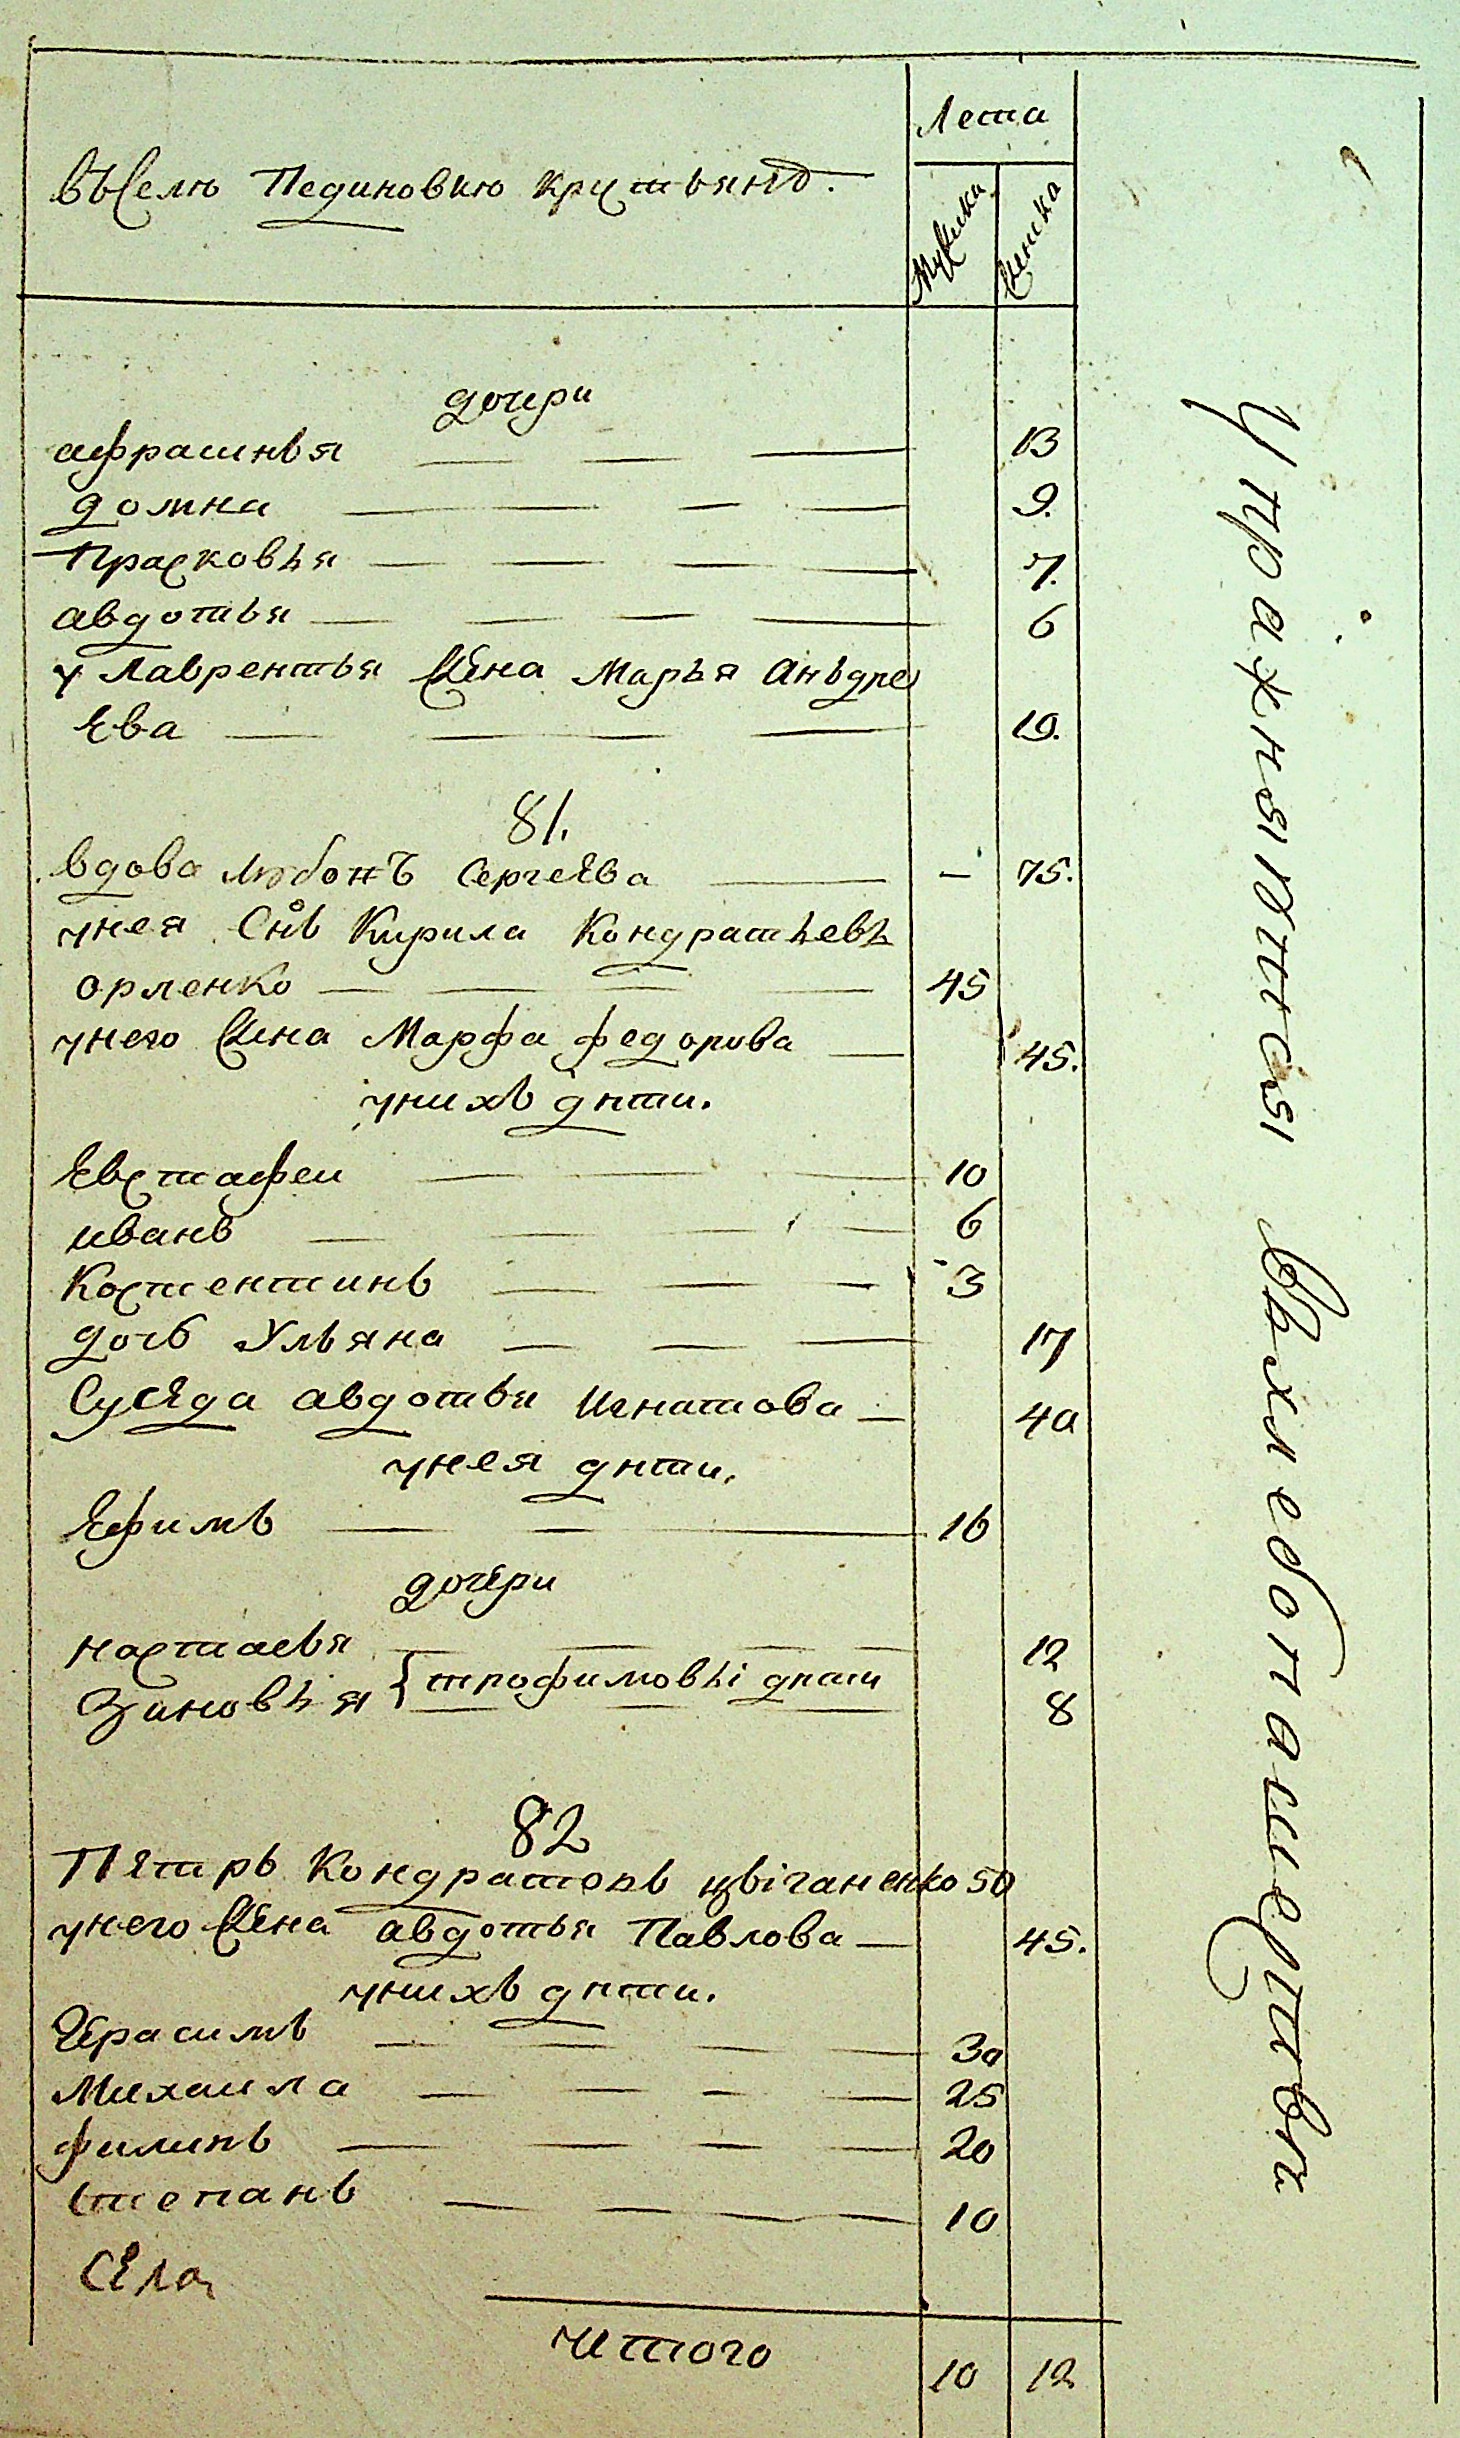 въселѣ Пединовкѣ крестьянъ.
Лета
Мужска
Женска
дочери
афросинья 13
домна 9.
Прасковья 7.
авдотья 6
у лаврентья жена Марья Аньдре
ева 19.
81.
вдова любовъ Сергеева — 75.
унея Снъ Кирила Кондратьевъ
орленко 45
унего жена Марфа федорова 45.
унихъ дѣти.
Евстафеи 10
иванъ 6
Костентинъ 3
дочь Ульяна 17
Суседа авдотья Игнатова 40
унея дѣти.
Ефимъ 16
дочери
настасья 12
трофимовы дѣти
Зиновья 8
82
Петръ Кондратовъ цвіганенко 50
унего жена авдотья Павлова 45.
унихъ дѣти.
Герасимъ 30
Михаила 25
филипъ 20
степанъ 10
Села
итого 10 12
Упражняются въхлебопашествѣ